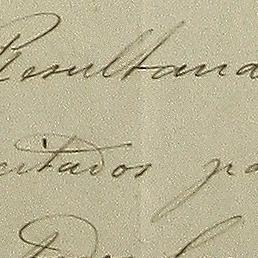 Resultand
citados pa